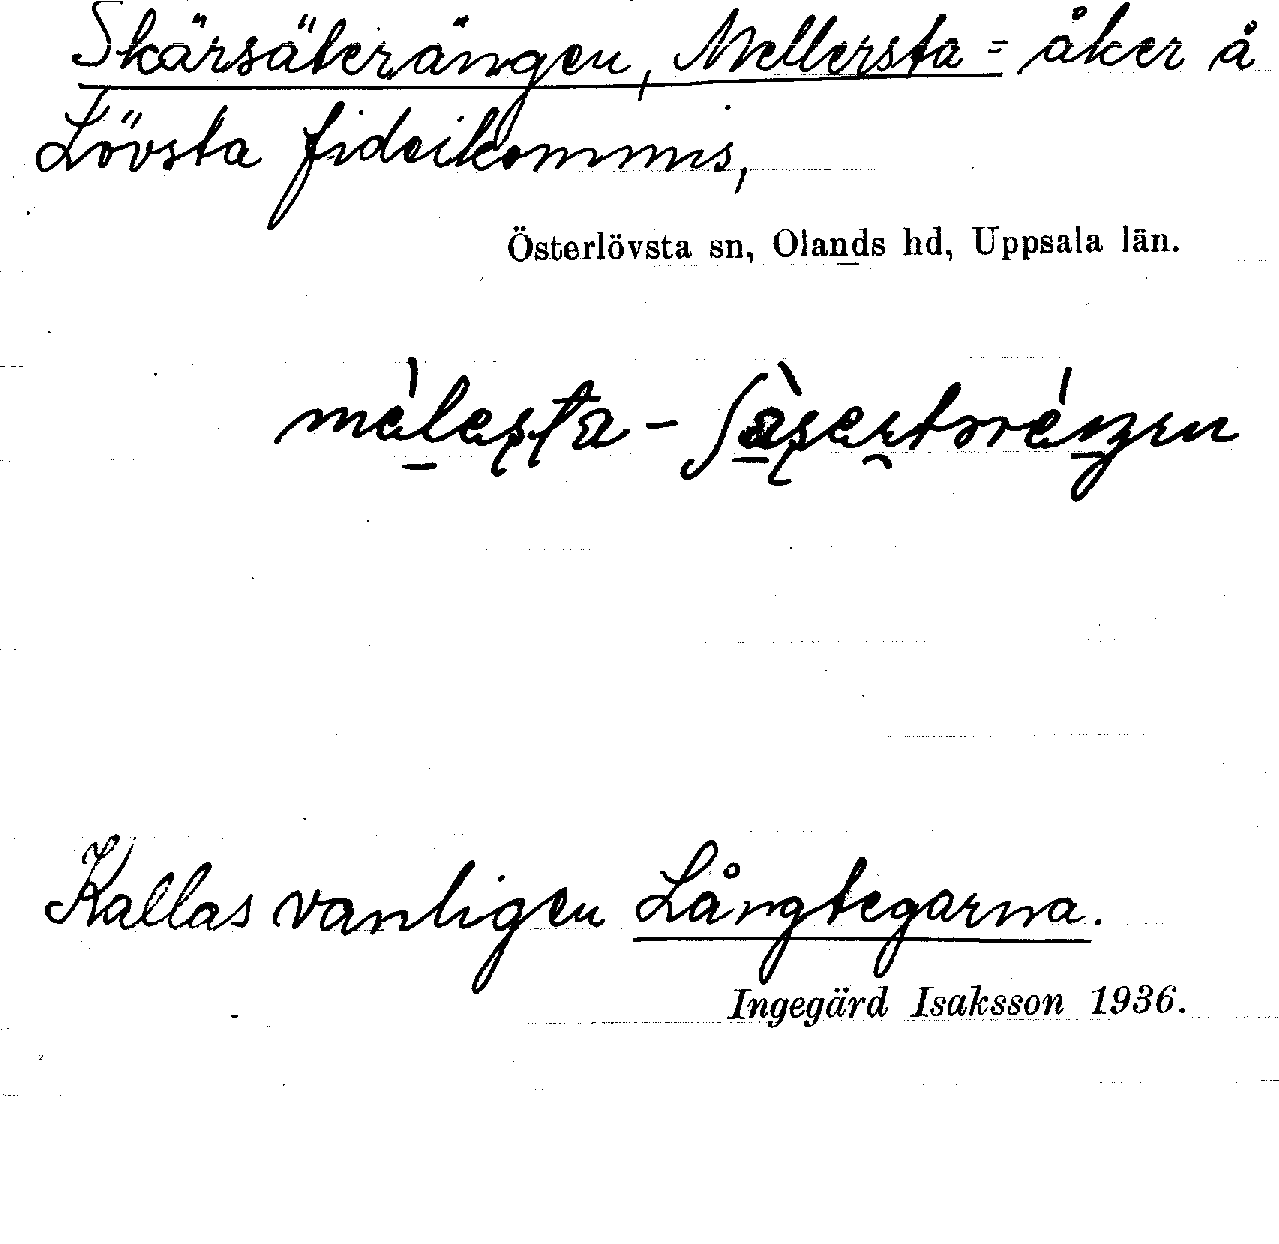 Skärsäterängen, Mellersta = åker å
Lövsta fideikommis,
Österlövsta sn, Olands hd, Uppsala län.
Kallas vanligen Långtegarna.
Ingegärd Isaksson 1936.